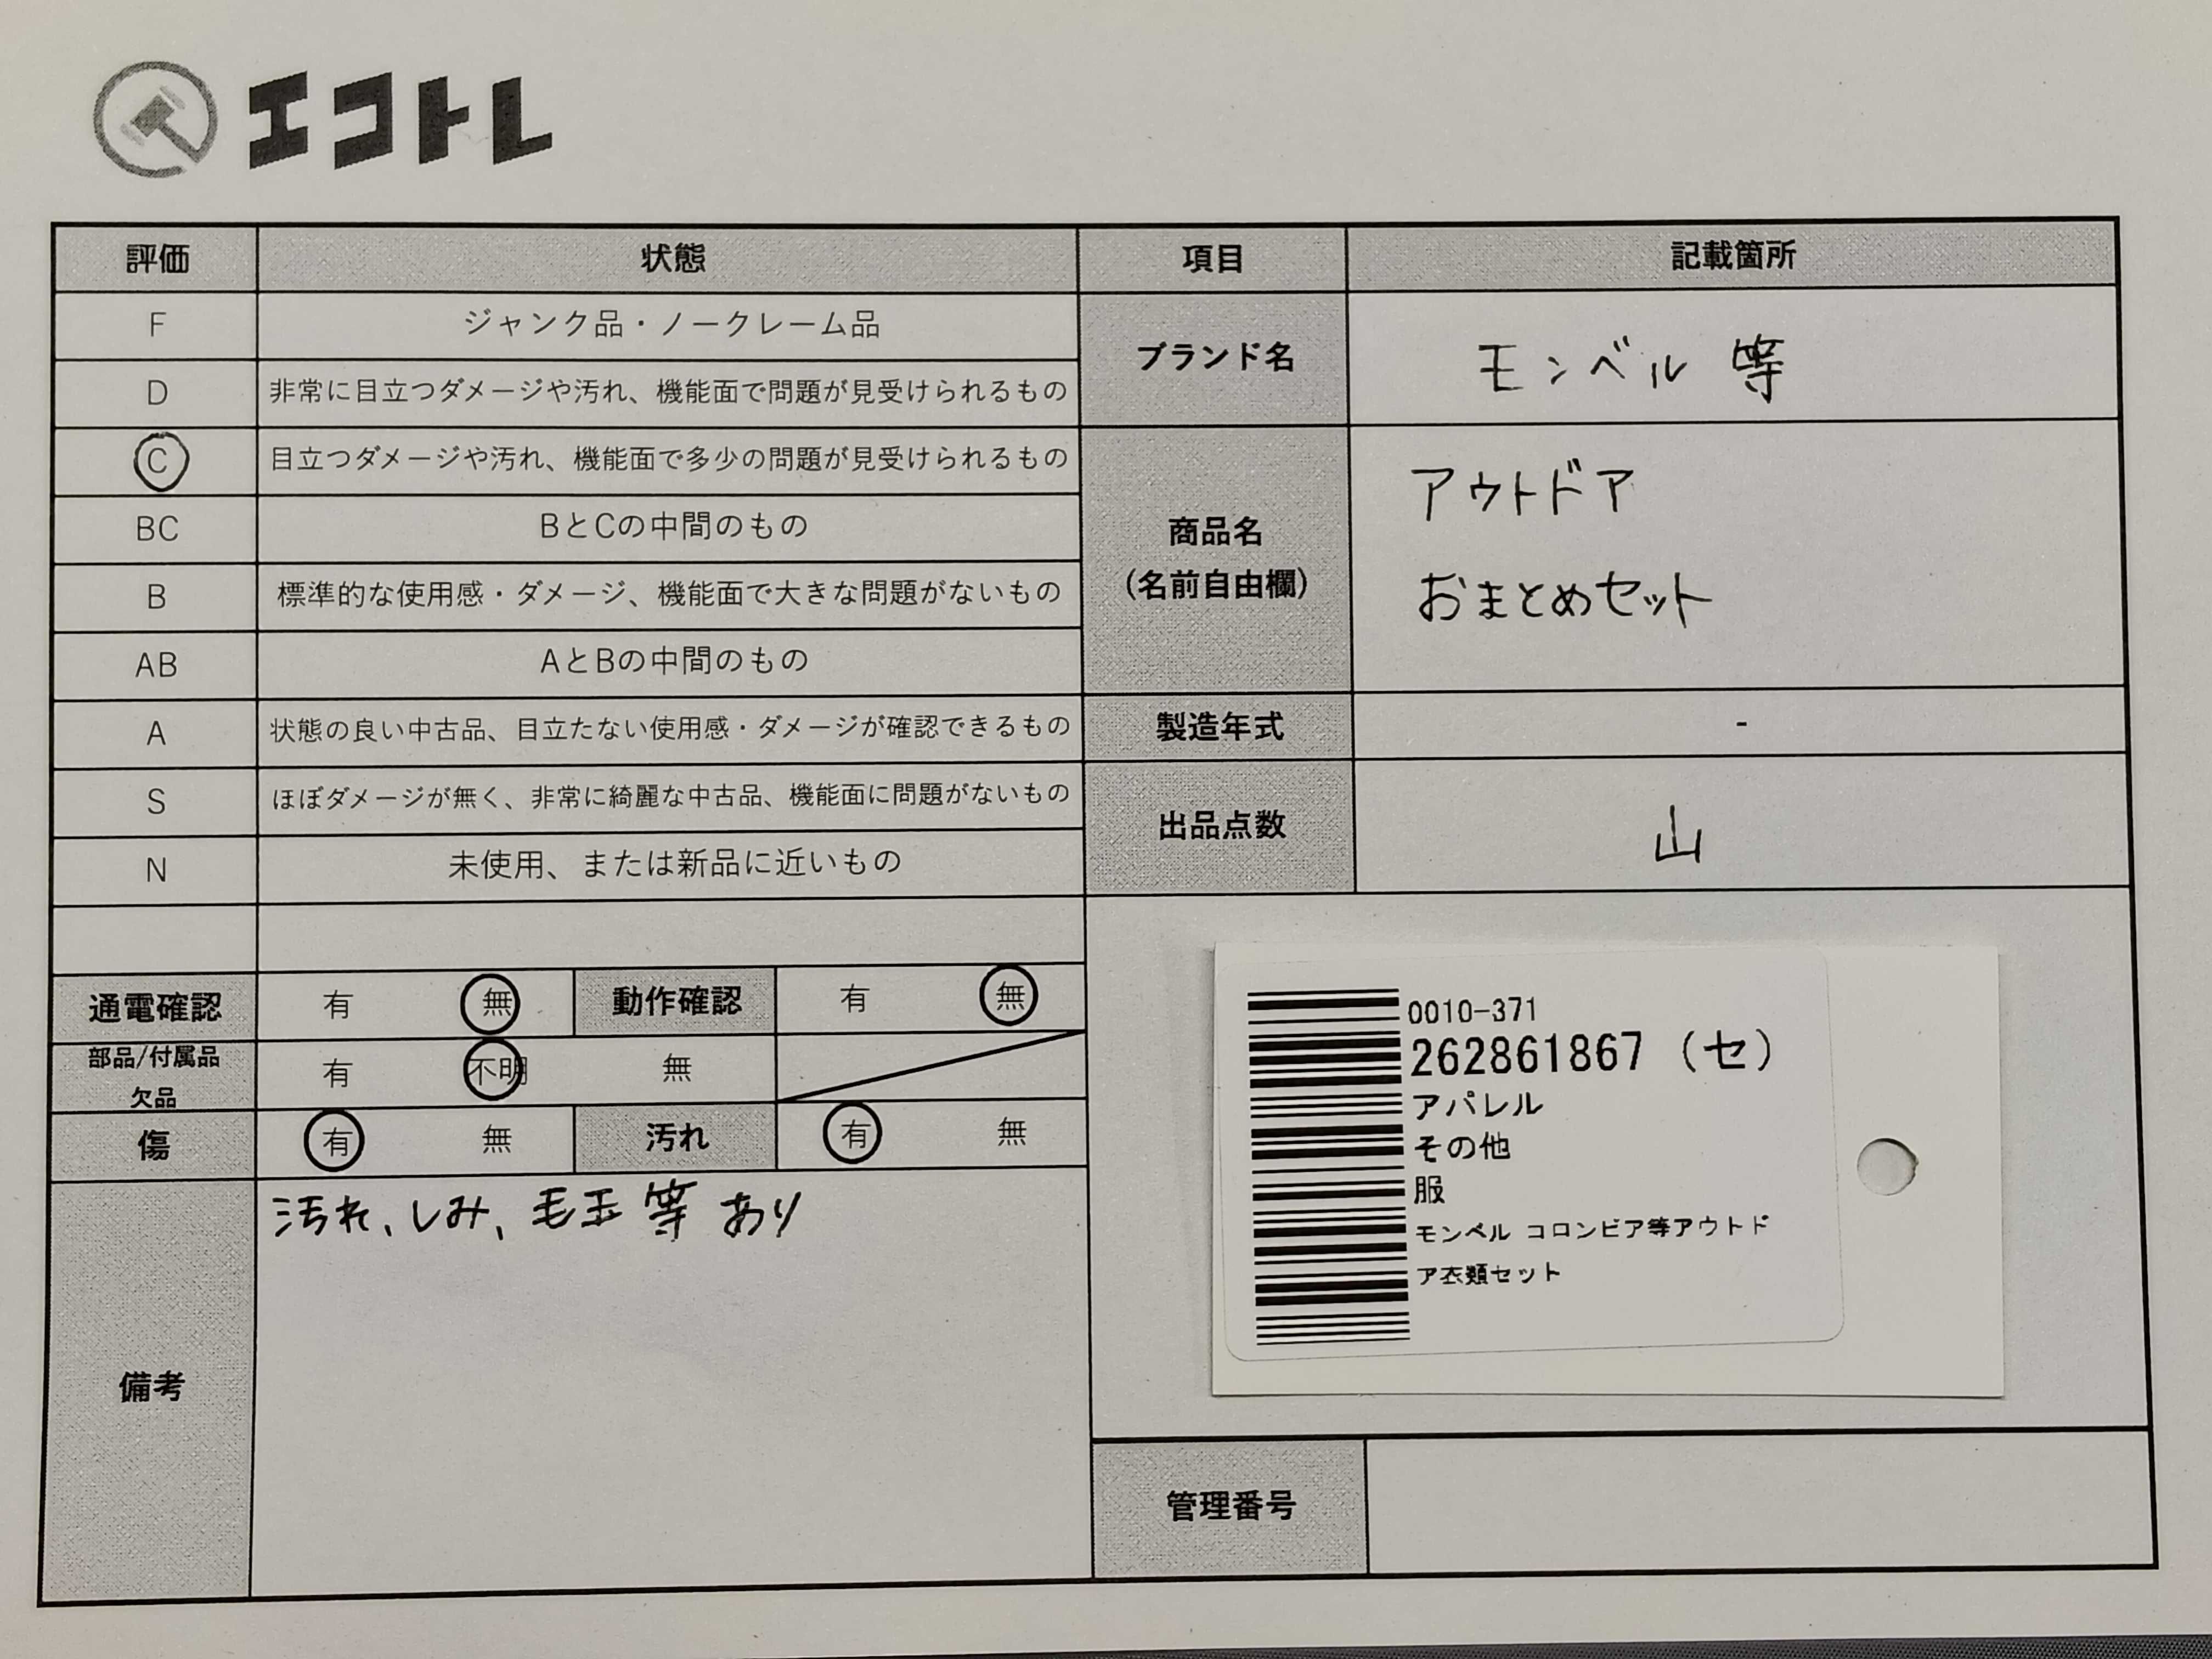 エコトレ
評価 状態 項目 記載箇所
F ジャンク品・ノークレーム品
D 非常に目立つダメージや汚れ、機能面で問題が見受けられるもの
C 目立つダメージや汚れ、機能面で多少の問題が見受けられるもの
BC BとCの中間のもの
B 標準的な使用感・ダメージ、機能面で大きな問題がないもの
AB AとBの中間のもの
A 状態の良い中古品、目立たない使用感・ダメージが確認できるもの
S ほぼダメージが無く、非常に綺麗な中古品、機能面に問題がないもの
N 未使用、または新品に近いもの
ブランド名 モンベル 等
商品名
(名前自由欄)
アウトドア
おまとめセット
製造年式 -
出品点数 山
通電確認 有 無 動作確認 有 無
部品/付属品
欠品
有 不明 無
傷 有 無 汚れ 有 無
備考
汚れ、しみ、毛玉 等 あり
0010-371
262861867 (セ)
アパレル
その他
服
モンベル コロンビア等アウトド
ア衣類セット
管理番号